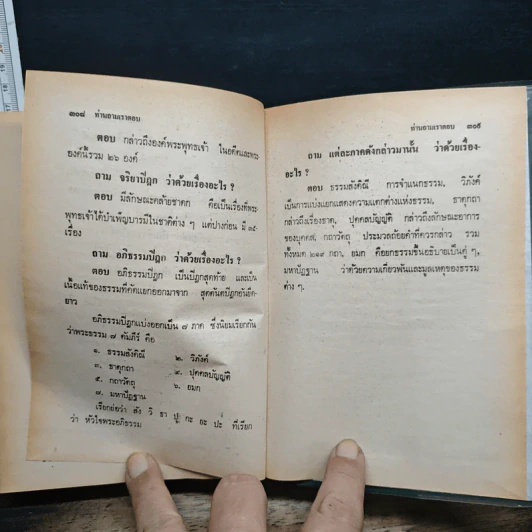 ๓๐๘ ท่านถามเราตอบ
ตอบ กล่าวถึงองค์พระพุทธเจ้า ในอดีตและพระ
องค์นี้รวม ๒๖ องค์
ถาม จริยาปิฎก ว่าด้วยเรื่องอะไร ?
ตอบ มีลักษณะคล้ายชาดก คือเป็นเรื่องที่พระ
พุทธเจ้าได้บำเพ็ญบารมีในชาติต่าง ๆ แต่ปางก่อน มี ๓๕
เรื่อง
ถาม อภิธรรมปิฎก ว่าด้วยเรื่องอะไร ?
ตอบ อภิธรรมปิฎก เป็นปิฎกสุดท้าย และเป็น
เนื้อแท้ของธรรมที่คัดแยกออกมาจาก สุตตันตปิฎกอันยืด
ยาว
อภิธรรมปิฎกแบ่งออกเป็น ๗ ภาค ซึ่งนิยมเรียกกัน
ว่าพระธรรม ๗ คัมภีร์ คือ
๑. ธรรมสังคิณี ๒. วิภังค์
๓. ธาตุกถา ๔. ปุคคลบัญญัติ
๕. กถาวัตถุ ๖. ยมก
๗. มหาปัฏฐาน
เรียกย่อว่า สัง วิ ธา ปุ กะ ยะ ปะ ที่เรียก
ว่า หัวใจพระอภิธรรม
ท่านถามเราตอบ ๓๐๙
ถาม แต่ละภาคดังกล่าวมานั้น ว่าด้วยเรื่อง-
อะไร ?
ตอบ ธรรมสังคิณี การจำแนกธรรม, วิภังค์
เป็นการแบ่งแยกแสดงความแตกต่างแห่งธรรม, ธาตุกถา
กล่าวถึงเรื่องธาตุ, ปุคคลบัญญัติ กล่าวถึงลักษณะอาการ
ของบุคคล, กถาวัตถุ ประมวลถ้อยคำที่ควรกล่าว รวม
ทั้งหมด ๒๑๙ กถา, ยมก คือยกธรรมขึ้นอธิบายเป็นคู่ ๆ,
มหาปัฏฐาน ว่าด้วยความเกี่ยวพันและมูลเหตุของธรรม
ต่าง ๆ.